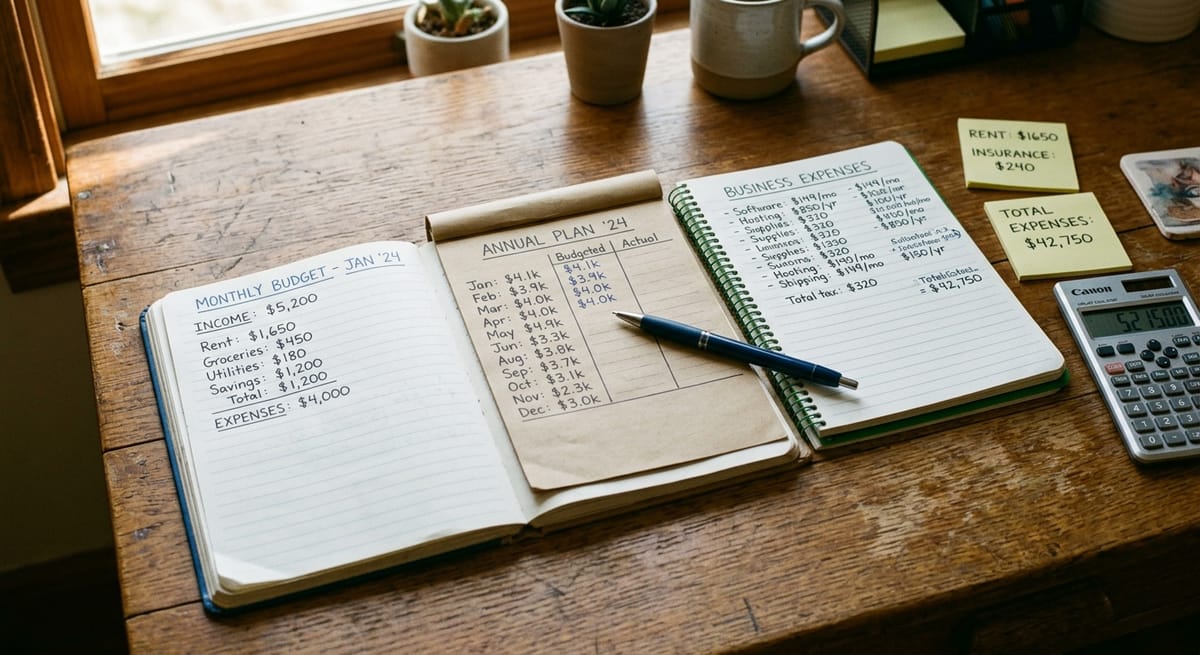 MONTHLY BUDGET - JAN '24
INCOME: $5,200
Rent: $1,650
Groceries: $450
Utilities: $180
Savings: $1,200
Total: $1,200
EXPENSES: $4,000
ANNUAL PLAN '24
Budgeted Actual
Jan: $4.1k $4.1k
Feb: $3.9k $3.9k
Mar: $4.0k $4.0k
Apr: $4.0k $4.0k
May: $4.9k
Jun: $3.3k
Aug: $3.8k
Sep: $3.7k
Oct: $3.1k
Nov: $2.3k
Dec: $3.0k
BUSINESS EXPENSES
- Software: $149/mo $149/mo
- Hosting: $850/yr
- Supplies: $320 $100/yr
- Supplies: $320
- $320
- $1330 $850/yr
- $320
- Hosting: $149/mo
- Shipping: $149/mo $150/yr
Total tax: $320
= $42,750
RENT: $1650
INSURANCE:
$240
TOTAL
EXPENSES:
$42,750
Canon